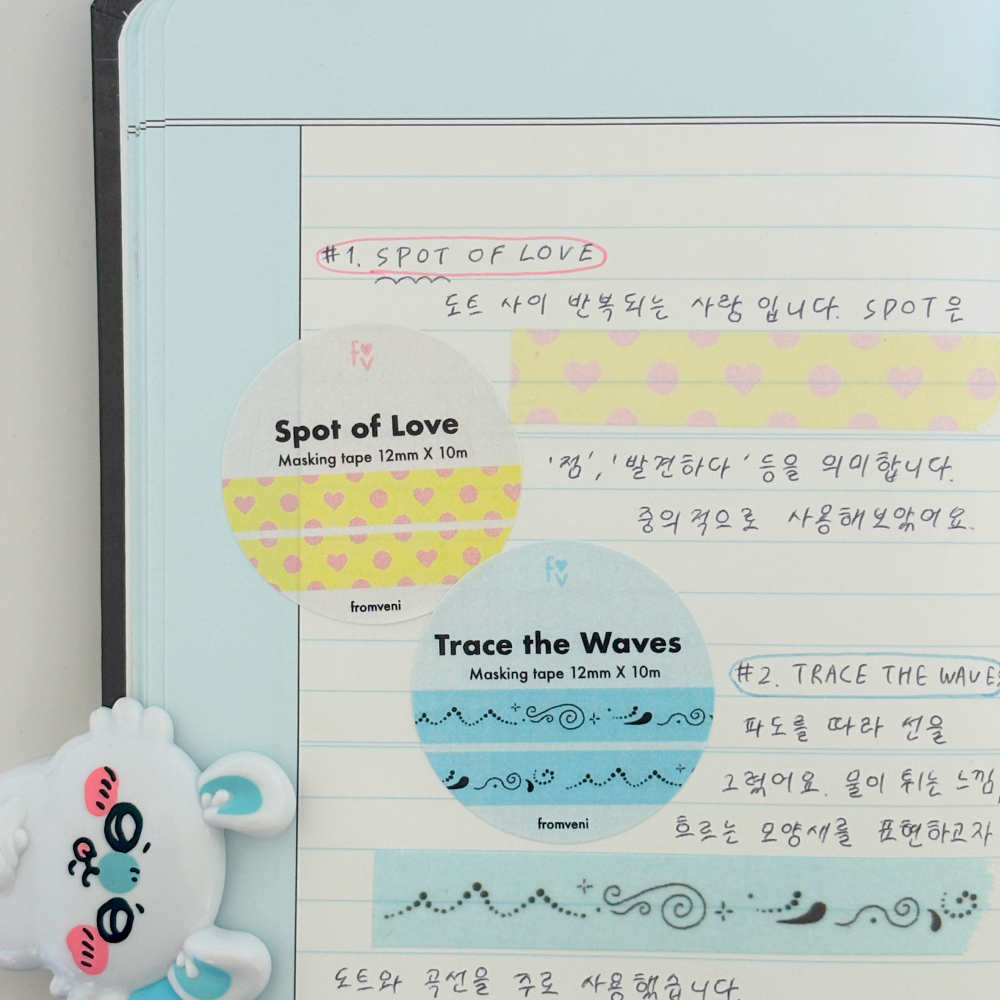 #1. SPOT OF LOVE
도트 사이 반복되는 사랑입니다. SPOT은
'점', '발견하다' 등을 의미합니다.
중의적으로 사용해보았어요.
fv
Spot of Love
Masking tape 12mm X 10m
fromveni
fv
Trace the Waves
Masking tape 12mm X 10m
fromveni
#2. TRACE THE WAVES
파도를 따라 선을
그렸어요. 물이 튀는 느낌,
흐르는 모양새를 표현하고자
도트와 곡선을 주로 사용했습니다.